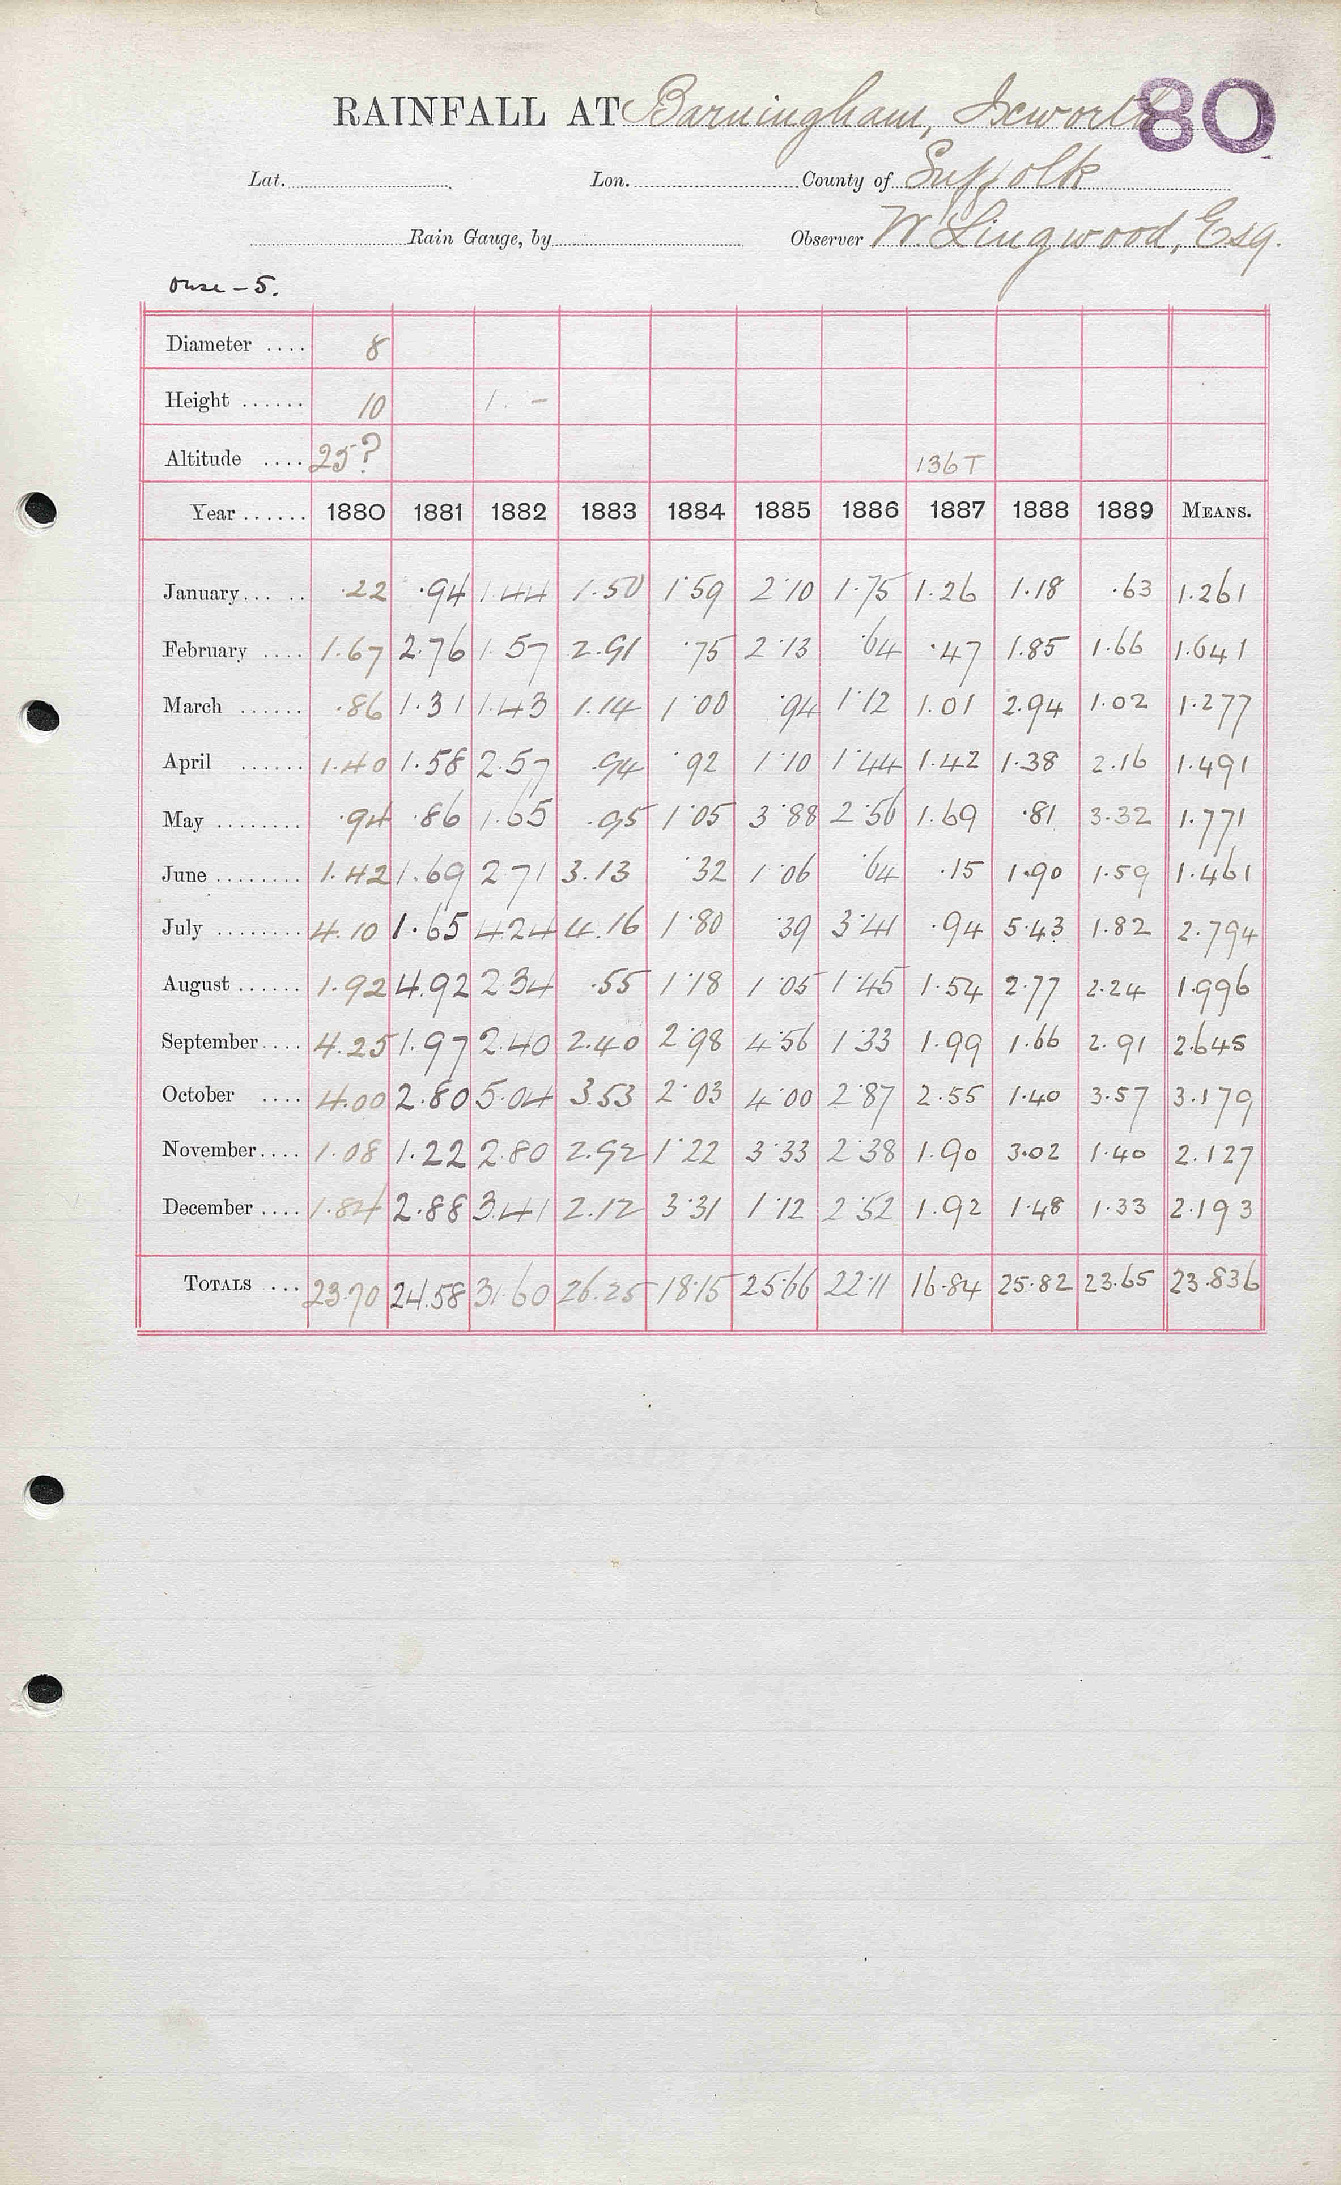 RAINFALL AT Barningham, Ixworth 80
Lat. Lon. County of Suffolk
Rain Gauge, by Observer W. Lingwood, Esq.
Ouse - 5.
Diameter .... 8
Height ...... 10 1. -
Altitude .... 25? 136T
Year ...... 1880 1881 1882 1883 1884 1885 1886 1887 1888 1889 MEANS.
January... .. .22 .94 1.44 1.50 1.59 2.10 1.75 1.26 1.18 .63 1.261
February .... 1.67 2.76 1.57 2.91 .75 2.13 .64 .47 1.85 1.66 1.641
March ...... .86 1.31 1.43 1.14 1.00 .94 1.12 1.01 2.94 1.02 1.277
April ...... 1.40 1.58 2.57 .94 .92 1.10 1.44 1.42 1.38 2.16 1.491
May ........ .94 .86 1.65 .95 1.05 3.88 2.56 1.69 .81 3.32 1.771
June ........ 1.42 1.69 2.71 3.13 .32 1.06 .64 .15 1.90 1.59 1.461
July ........ 4.10 1.65 4.24 4.16 1.80 .39 3.41 .94 5.43 1.82 2.794
August ...... 1.92 4.92 2.34 .55 1.18 1.05 1.45 1.54 2.77 2.24 1.996
September.... 4.25 1.97 2.40 2.40 2.98 4.56 1.33 1.99 1.66 2.91 2.645
October .... 4.00 2.80 5.04 3.53 2.03 4.00 2.87 2.55 1.40 3.57 3.179
November.... 1.08 1.22 2.80 2.92 1.22 3.33 2.38 1.90 3.02 1.40 2.127
December .... 1.84 2.88 3.41 2.12 3.31 1.12 2.52 1.92 1.48 1.33 2.193
TOTALS ... 23.70 24.58 31.60 26.25 18.15 25.66 22.11 16.84 25.82 23.65 23.836